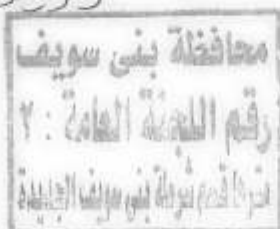 محافظة بنى سويف
رقم اللجنة العامة : ٢
مقرها قسم شرطة بنى سويف الجديدة